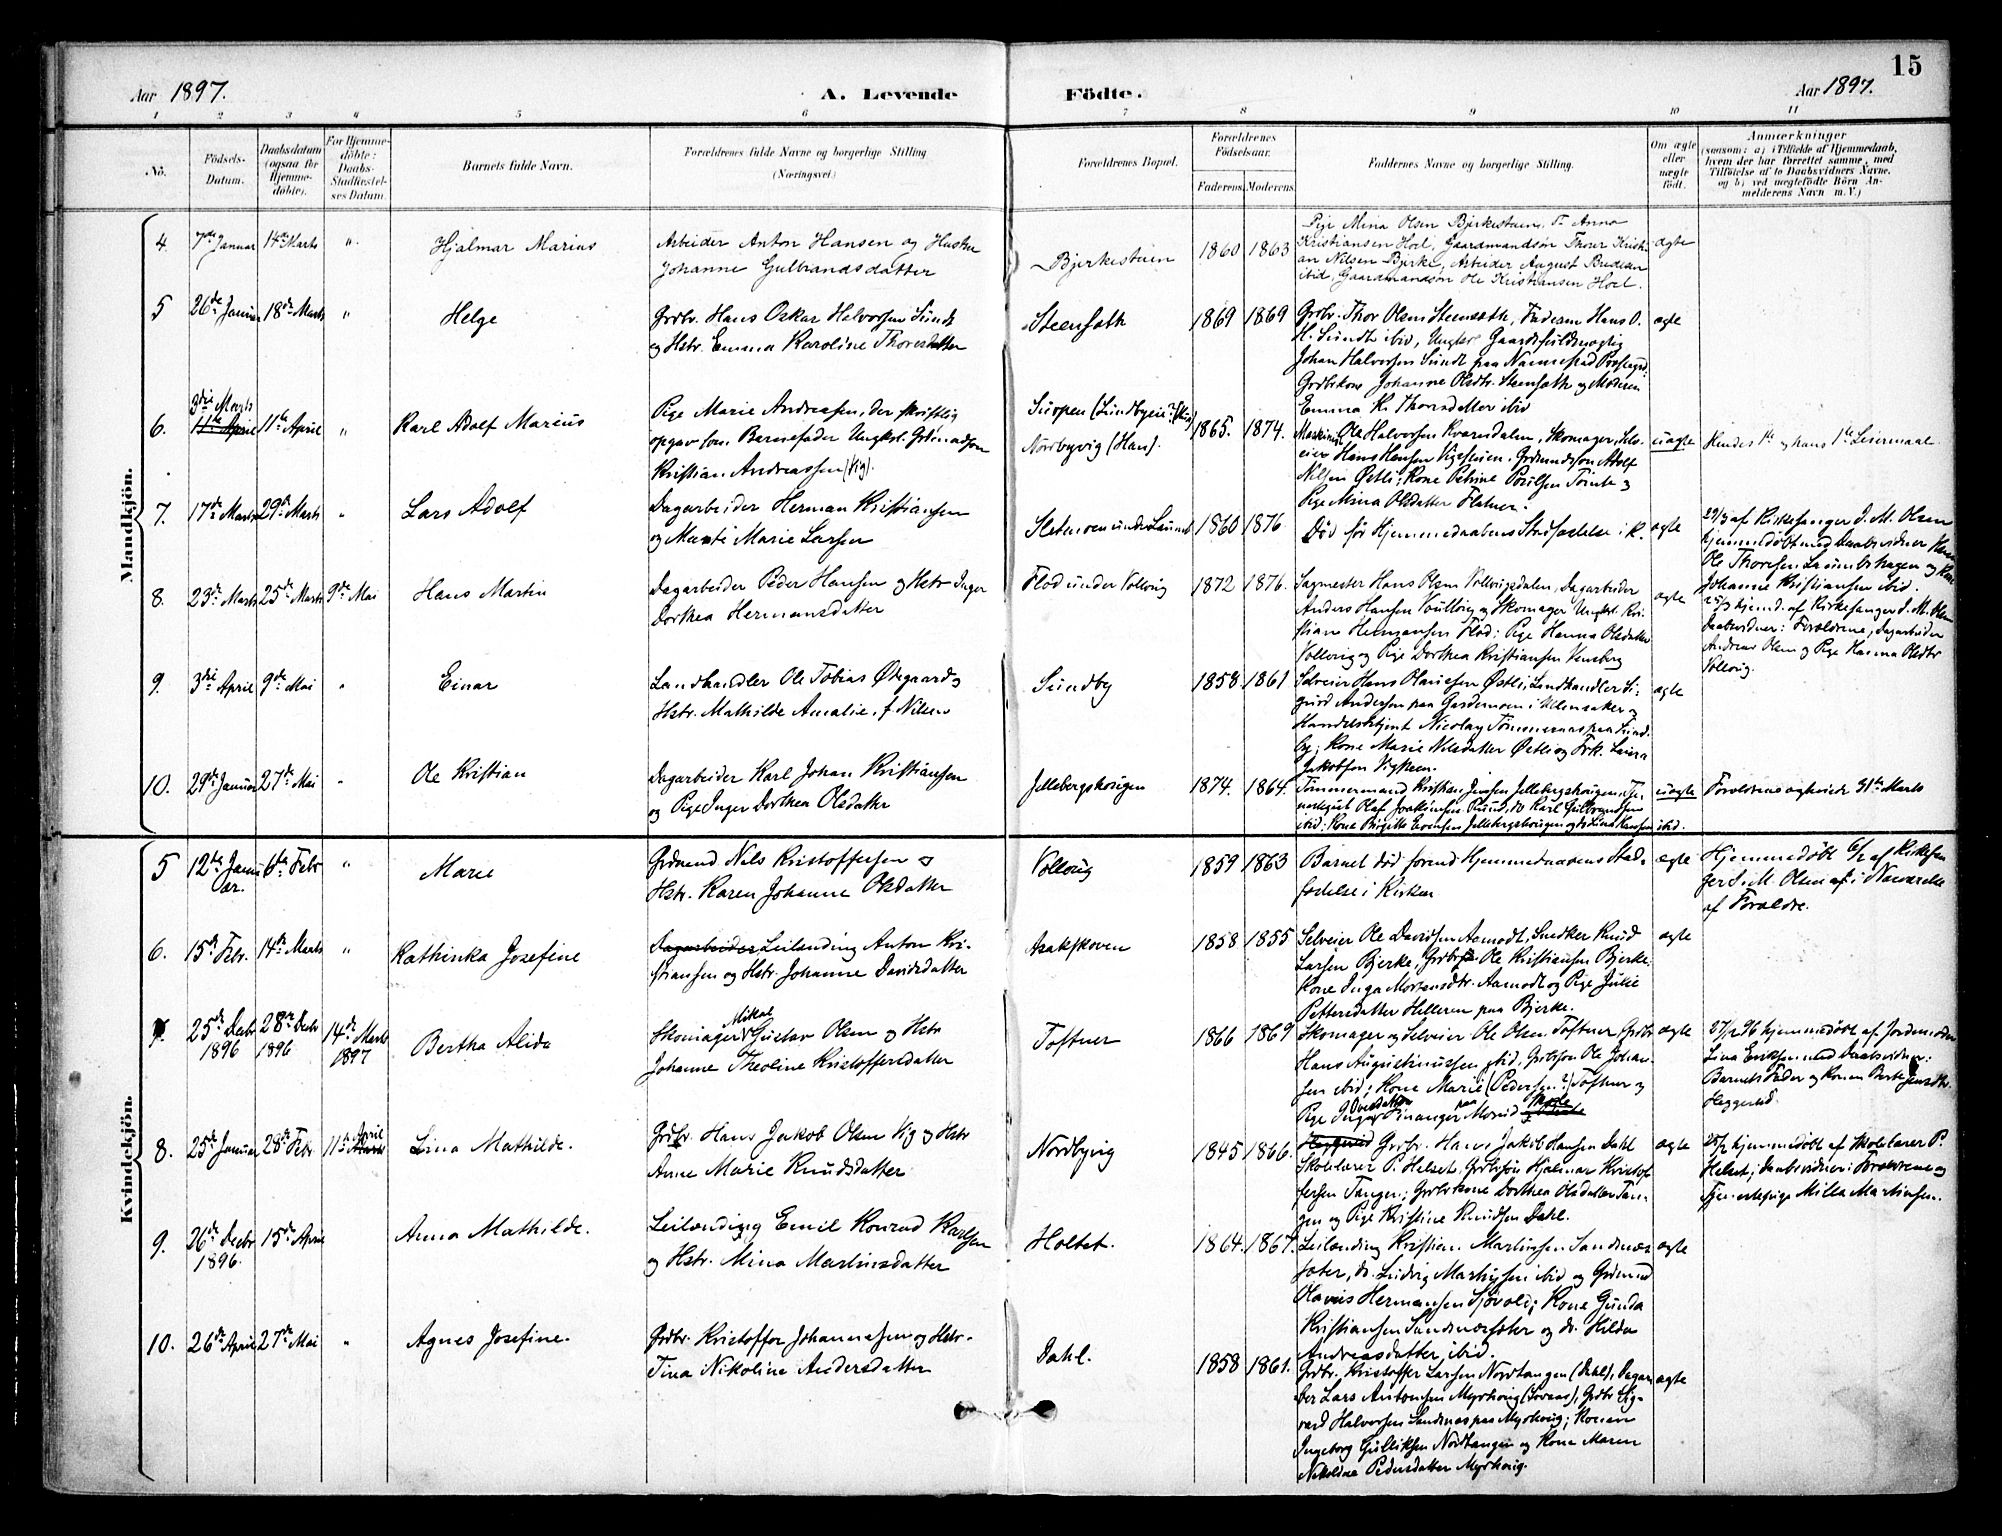 15
Aar 1897.
A. Levende Födte.
Aar 1897.
1 2 3 4 5 6 7 8 9 10 11
No.
Födsels-
Datum.
Daabsdatum
(ogsaa for
Hjemme-
döbte).
For Hjemme-
döbte:
Daabs-
Stadfæstel-
ses Datum
Barnets fulde Navn.
Forældrenes fulde Navne og borgerlige Stilling
(Næringsvei.)
Forældrenes Bopæl.
Forældrenes
Födselsaar.
Faderens. Moderens.
Faddernes Navne og borgerlige Stilling.
Om ægte
eller
uægte
födt.
Anmærkninger
(saasom: a) i Tilfælde af Hjemmedaab,
hvem der har forrettet samme, med
Tilföielse af to Daabsvidners Navne,
og b) ved uægtefödte Börn An-
melderens Navn m. V.)
Mandkjön.
4 7de Januar 14de Marts " Hjalmar Marius
Arbeider Anton Hansen og Hustru
Johanne Gulbrandsdatter
Bjerkestuen 1860 1863
Pige Mina Olsen Bjerkestuen, Anna
Kristiansen Hoel, Gaardmandsøn Thour Kristi-
an Nilsen Bjerke, Arbeider August Bredesen
ibid, Gaardmandsøn Ole Kristiansen Hoel.
ægte
5 26de Januar 18de Marts " Helge
Grdbr. Hans Oskar Halvorsen Sundt
og Hstr. Emma Karoline Thorsdatter
Steensæth 1869 1869
Grdbr. Thor Olsen Steensæth, Faderen Hans O.
H. Sundt ibid, Ungkr. Gaardsfuldmægtig
Johan Halvorsen Sundt paa Nannestad Præstegrd.
Grdbrkone Johanne Olsdtr. Steensæth og Moderen
Emma K. Thorsdatter ibid
ægte
6. 3die Marts
11te April 11te April " Karl Adolf Marius
Pige Marie Andreassen, der skriftlig
opgav som Barnefader Ungkrl. Grdmandsøn
Kristian Andreassen (Vig).
Nordbyvig (Han). 1865. 1874.
Ole Halvorsen Kværndalen, Skomager, Selv-
eier Hans Hansen Vigstuen, Grdmandssøn Adolf
Nilsen Østli; Kone Petrine Poulsen Tomte og
Pige Mina Olsdatter Flatner.
uægte
Hendes 1te og hans 1te Leiermaal
7. 17de Marts 29de Marts " Lars Adolf
Dagarbeider Herman Kristiansen
og Marie Larsen
1860 1876
Død før Hjemmedaabens Stadfæstelse i K.
ægte
29/3 af Kirkesanger J. M. Olsen
hjemmedøbt med Daabsvidner
Ole Thoresen og Kone
Johanne Kristiansen ibid.
8. 23de Marts 25de Marts 9de Mai Hans Martin
Dagarbeider Peder Hansen og Hstr Inger
Dorthea Hermansdatter
Flod under Vollaug 1872 1876.
Sagmester Hans Olsen Dagarbeider
Anders Hansen og Skomager Ungkrl. Kri-
stian Hermansen Flod; Pige Hanna Olsdatter
og Pige Dorthea Kristiansen
ægte
25/3 hjemd. af Kirkesanger J. M. Olsen
Daabsvidner: Forældrene, Dagarbeider
Andreas Olsen og Pige Hanna Olsdtr
9. 3die April 9de Mai " Einar
Landhandler Ole Tobias Ødegaard og
Hstr. Mathilde Amalie f. Nilsen
Sundby 1858. 1861
Selveier Hans Olaussen Østli, Landhandler Si-
gurd Andersen paa Gardemoen i Ullensaker og
Handelsbetjent Nicolay Tømmeraas paa Sund-
by; Kone Marie Nilsdatter Østli og Frk. Laura
Jakobsen Vigsteen.
ægte
10. 29de Januar 27de Mai " Ole Kristian
Dagarbeider Karl Johan Kristiansen
og Pige Inger Dorthea Olsdatter
Jellebergshaugen 1874. 1864.
Tømmermand Kristian Jensen Jellebergshaugen,
Olaf Joakimsen Ruud, do Karl Gulbrandsen
ibid; Kone Birgitte Evensen Jellebergshaugen og do Lina Hansen ibid.
uægte
Forældrene 31te Marts
Kvindekjön.
5 12te Janu-
ar. 6te Febr " Marie
Grdmand Nils Kristoffersen og
Hstr. Karen Johanne Olsdatter
1859 1863
Barnet død forend Hjemmedaabens Stad-
fæstelse i Kirken
ægte
Hjemmedøbt 6/2 af Kirkesan-
ger J. M. Olsen i Nærværelse
af Forældre.
6. 15de Febr. 14de Marts " Kathinka Josefine
Dagarbeider Leilænding Anton Kri-
stiansen og Hstr. Johanne Davidsdatter
Asakskoven 1858 1855
Selveier Ole Davidsen Aamodt, Snedker Knud
Larsen Bjerke, Grdbrs. Ole Kristiansen Bjerke.
Kone Inga Mortensdtr. Aamodt og Pige Julie
Pettersdatter Helleren paa Bjerke.
ægte
7. 25de Decbr
1896 28de Decbr
1896 14de Marts
1897 Bertha Alida
Skomager Mikal Gustav Olsen og Hstr
Johanne Theoline Kristoffersdatter
Toftner 1866 1869
Skomager og Selveier Ole Olsen Toftner, Grdbr
Hans Augustinussen ibid, Grdbrsøn Ole Johan-
sen ibid; Kone Marie (Pedersen?) Toftner og
Pige Inger
ægte
27/12 96 hjemmedøbt af Jordemoder
Lina Eriksen med Daabsvidner:
Barnets Fader og Konen
Heggerud.
8. 25de Januar 28de Febr 11te April Lina Mathilde.
Grdbr. Hans Jakob Olsen Vig og Hstr
Anne Marie Knudsdatter
Nordbyvig 1845 1866.
Grdbr. Hans Jakob Hansen Dahl
Skolelærer P. Helset, Grdbrsøn Hjalmar Kristof-
fersen Tangen; Grdbrkone Dorthea Olsdatter Tan-
gen og Pige Kristine Knudsen Dahl.
ægte
28/2 hjemmedøbt af Skolelærer P.
Helset; Daabsvidner: Forældrene og
Tjenestepige Milla Martinsen.
9. 26de Decbr
1896. 15de April Anna Mathilde.
Leilænding Emil Konrad Karlsen
og Hstr. Mina Martinsdatter
Holtet. 1864. 1867.
Leilænding Kristian Martinsen Sandnæs-
sæter, do. Ludvig Mathisen ibid og Grdmand
Olaves Hermansen Sjøvold; Kone Gunda
Kristiansen Sandnæssæter og do. Hilda
Andreasdatter ibid.
ægte
10. 26de April 27de Mai " Agnes Josefine.
Grdbr. Kristoffer Johannessen og Hstr.
Tina Nikoline Andersdatter
Dahl. 1858 1861.
Grdbr. Kristoffer Larsen Nordtangen (Dahl), Dagar-
ber Lars Antonsen Myrhaug, Grdbr Sig-
vard Halvorsen Sandnæs paa Myrhaug; Konen
Ingeborg Gulliksen Nordtangen og Kone Maren
Nikoline Pedersdatter Myrhaug.
ægte